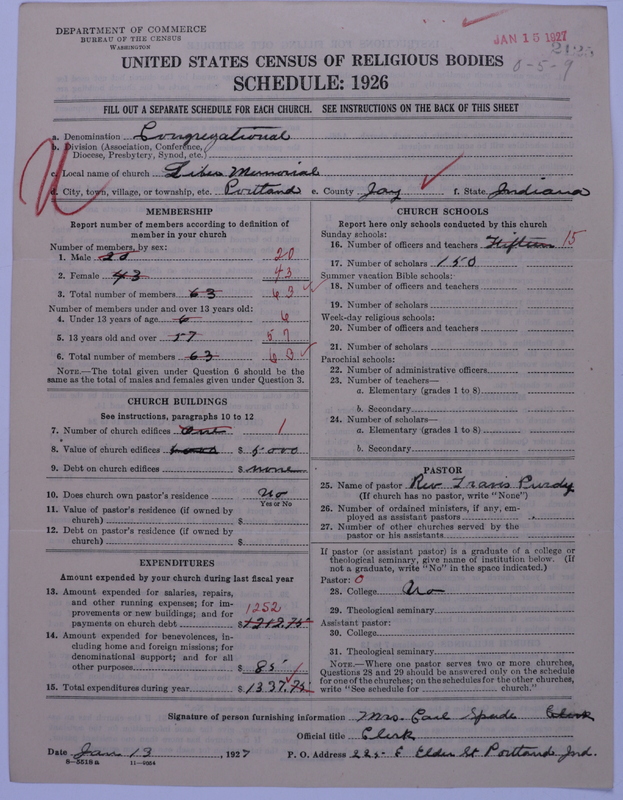 DEPARTMENT OF COMMERCE
BUREAU OF THE CENSUS
WASHINGTON
JAN 15 1927
0-5-9
UNITED STATES CENSUS OF RELIGIOUS BODIES
SCHEDULE: 1926
FILL OUT A SEPARATE SCHEDULE FOR EACH CHURCH. SEE INSTRUCTIONS ON THE BACK OF THIS SHEET
a. Denomination Congregational
b. Division (Association, Conference, Diocese, Presbytery, Synod, etc.)
c. Local name of church Liber Memorial
d. City, town, village, or township, etc. Portland e. County Jay f. State Indiana
MEMBERSHIP
Report number of members according to definition of
member in your church
Number of members, by sex:
1. Male 20 20
2. Female 43 43
3. Total number of members 63 63
Number of members under and over 13 years old:
4. Under 13 years of age 6 6
5. 13 years old and over 57 57
6. Total number of members 63 63
NOTE.—The total given under Question 6 should be
same as the total of males and females given under Question 3.
CHURCH BUILDINGS
See instructions, paragraphs 10 to 12
7. Number of church edifices One 1
8. Value of church edifices $ 5000
9. Debt on church edifices $ none
10. Does church own pastor's residence No
Yes or No
11. Value of pastor's residence (if owned by
church) $
12. Debt on pastor's residence (if owned by
church) $
EXPENDITURES
Amount expended by your church during last fiscal year
13. Amount expended for salaries, repairs,
and other running expenses; for im-
provements or new buildings; and for 1252
payments on church debt $ 1212.75
14. Amount expended for benevolences, in-
cluding home and foreign missions; for
denominational support; and for all
other purposes $ 85
15. Total expenditures during year $ 1337.75
CHURCH SCHOOLS
Report here only schools conducted by this church
Sunday schools:
16. Number of officers and teachers Fifteen 15
17. Number of scholars 150
Summer vacation Bible schools:
18. Number of officers and teachers
19. Number of scholars
Week-day religious schools:
20. Number of officers and teachers
21. Number of scholars
Parochial schools:
22. Number of administrative officers
23. Number of teachers—
a. Elementary (grades 1 to 8)
b. Secondary
24. Number of scholars—
a. Elementary (grades 1 to 8)
b. Secondary
PASTOR
25. Name of pastor Rev Travis Purdy
(If church has no pastor, write "None")
26. Number of ordained ministers, if any, em-
ployed as assistant pastors
27. Number of other churches served by the
pastor or his assistants
If pastor (or assistant pastor) is a graduate of a college or
theological seminary, give name of institution below. (If
not a graduate, write "No" in the space indicated.)
Pastor: 0
28. College No
29. Theological seminary
Assistant pastor:
30. College
31. Theological seminary
NOTE.—Where one pastor serves two or more churches,
Questions 28 and 29 should be answered only on the schedule
for one of the churches; on the schedules for the other churches,
write "See schedule for church."
Signature of person furnishing information Mrs. Earl Spade Clerk
Official title Clerk
Date Jan 13, 1927 P. O. Address 225 E Elder St Portland Ind.
8—5518a 11—9034